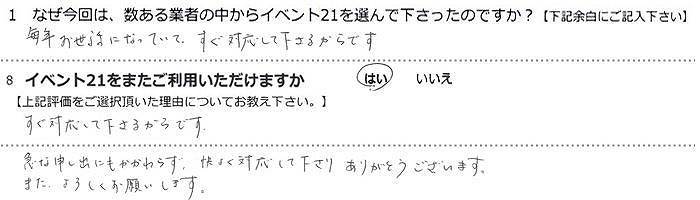 1 なぜ今回は、数ある業者の中からイベント21を選んで下さったのですか？【下記余白にご記入下さい】
毎年お世話になっていて、すぐ対応して下さるからです
8 イベント21をまたご利用いただけますか はい いいえ
【上記評価をご選択頂いた理由についてお教え下さい。】
すぐ対応して下さるからです.
急な申し出にもかかわらず、快よく対応して下さり ありがとうございます。
また、よろしくお願いします。